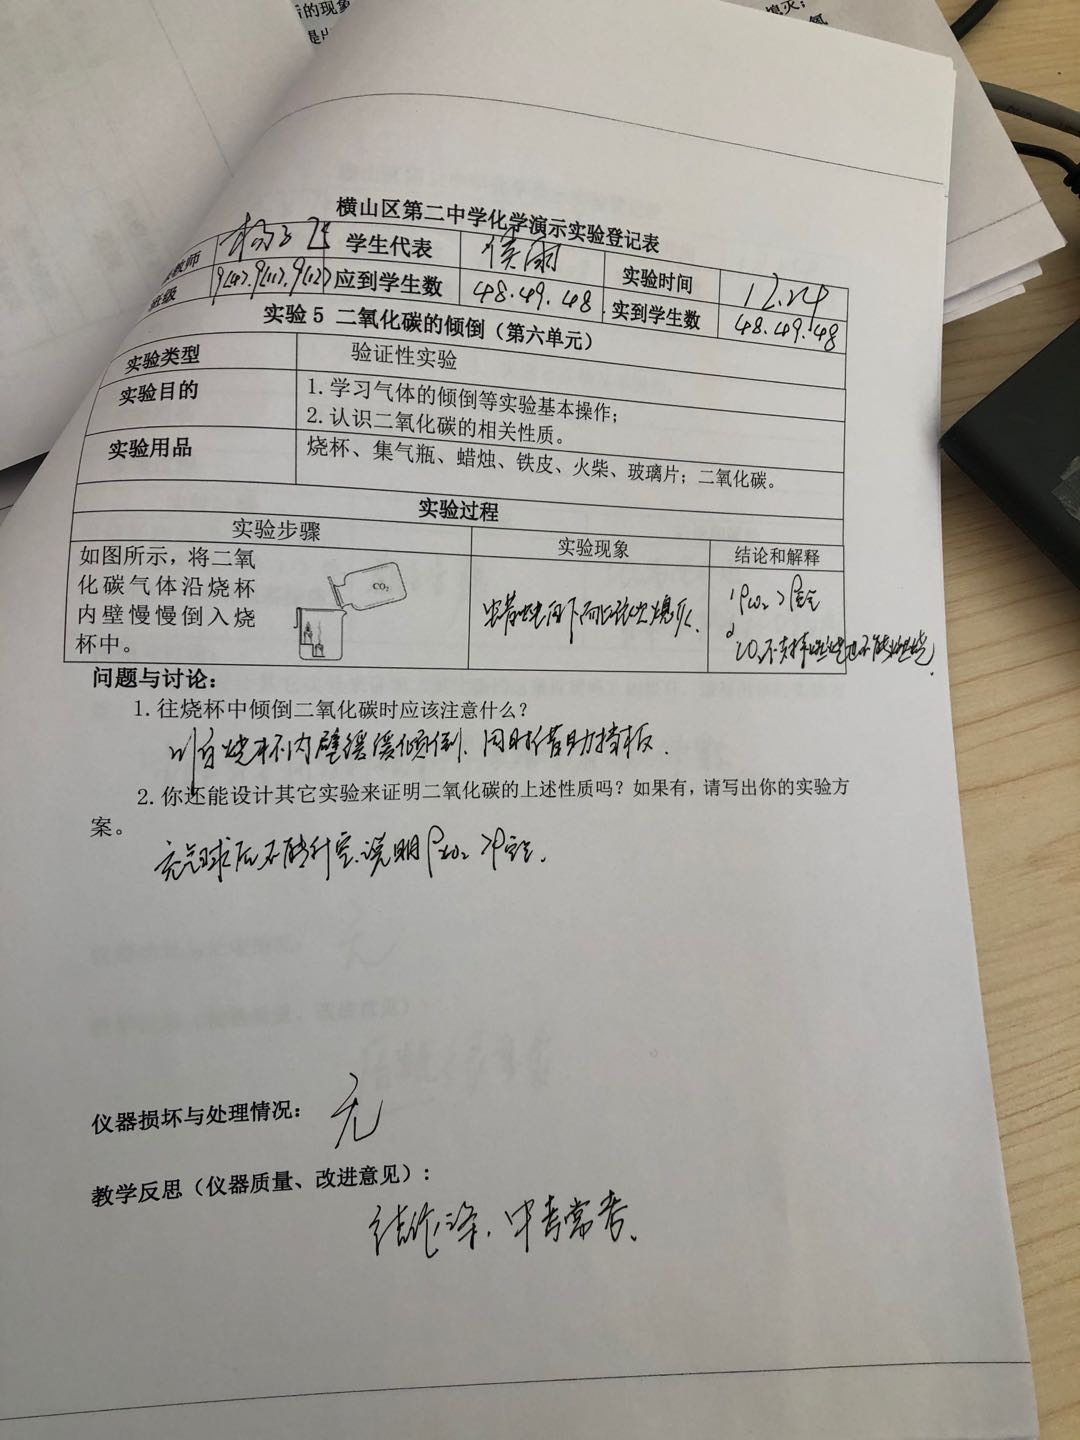 后的现象
熄灭；
氧
横山区第二中学化学演示实验登记表
教师 学生代表 侯雨 实验时间 12.24
班级 9(4).9(11).9(12) 应到学生数 48.49.48 实到学生数 48.49.48
实验5 二氧化碳的倾倒（第六单元）
实验类型 验证性实验
实验目的 1.学习气体的倾倒等实验基本操作；
2.认识二氧化碳的相关性质。
实验用品 烧杯、集气瓶、蜡烛、铁皮、火柴、玻璃片；二氧化碳。
实验过程
实验步骤 实验现象 结论和解释
如图所示，将二氧
化碳气体沿烧杯
内壁慢慢倒入烧
杯中。
CO₂
蜡烛自下而上依次熄灭.
1 ρco₂＞ρ空气
2 CO₂不支持燃烧也不能燃烧.
问题与讨论：
1.往烧杯中倾倒二氧化碳时应该注意什么？
烧杯内壁缓缓倾倒、同时借助挡板.
2.你还能设计其它实验来证明二氧化碳的上述性质吗？如果有，请写出你的实验方
案。
充气球后不能升空.说明ρco₂＞ρ空气.
仪器损坏与处理情况： 无
教学反思（仪器质量、改进意见）：
中考常考.